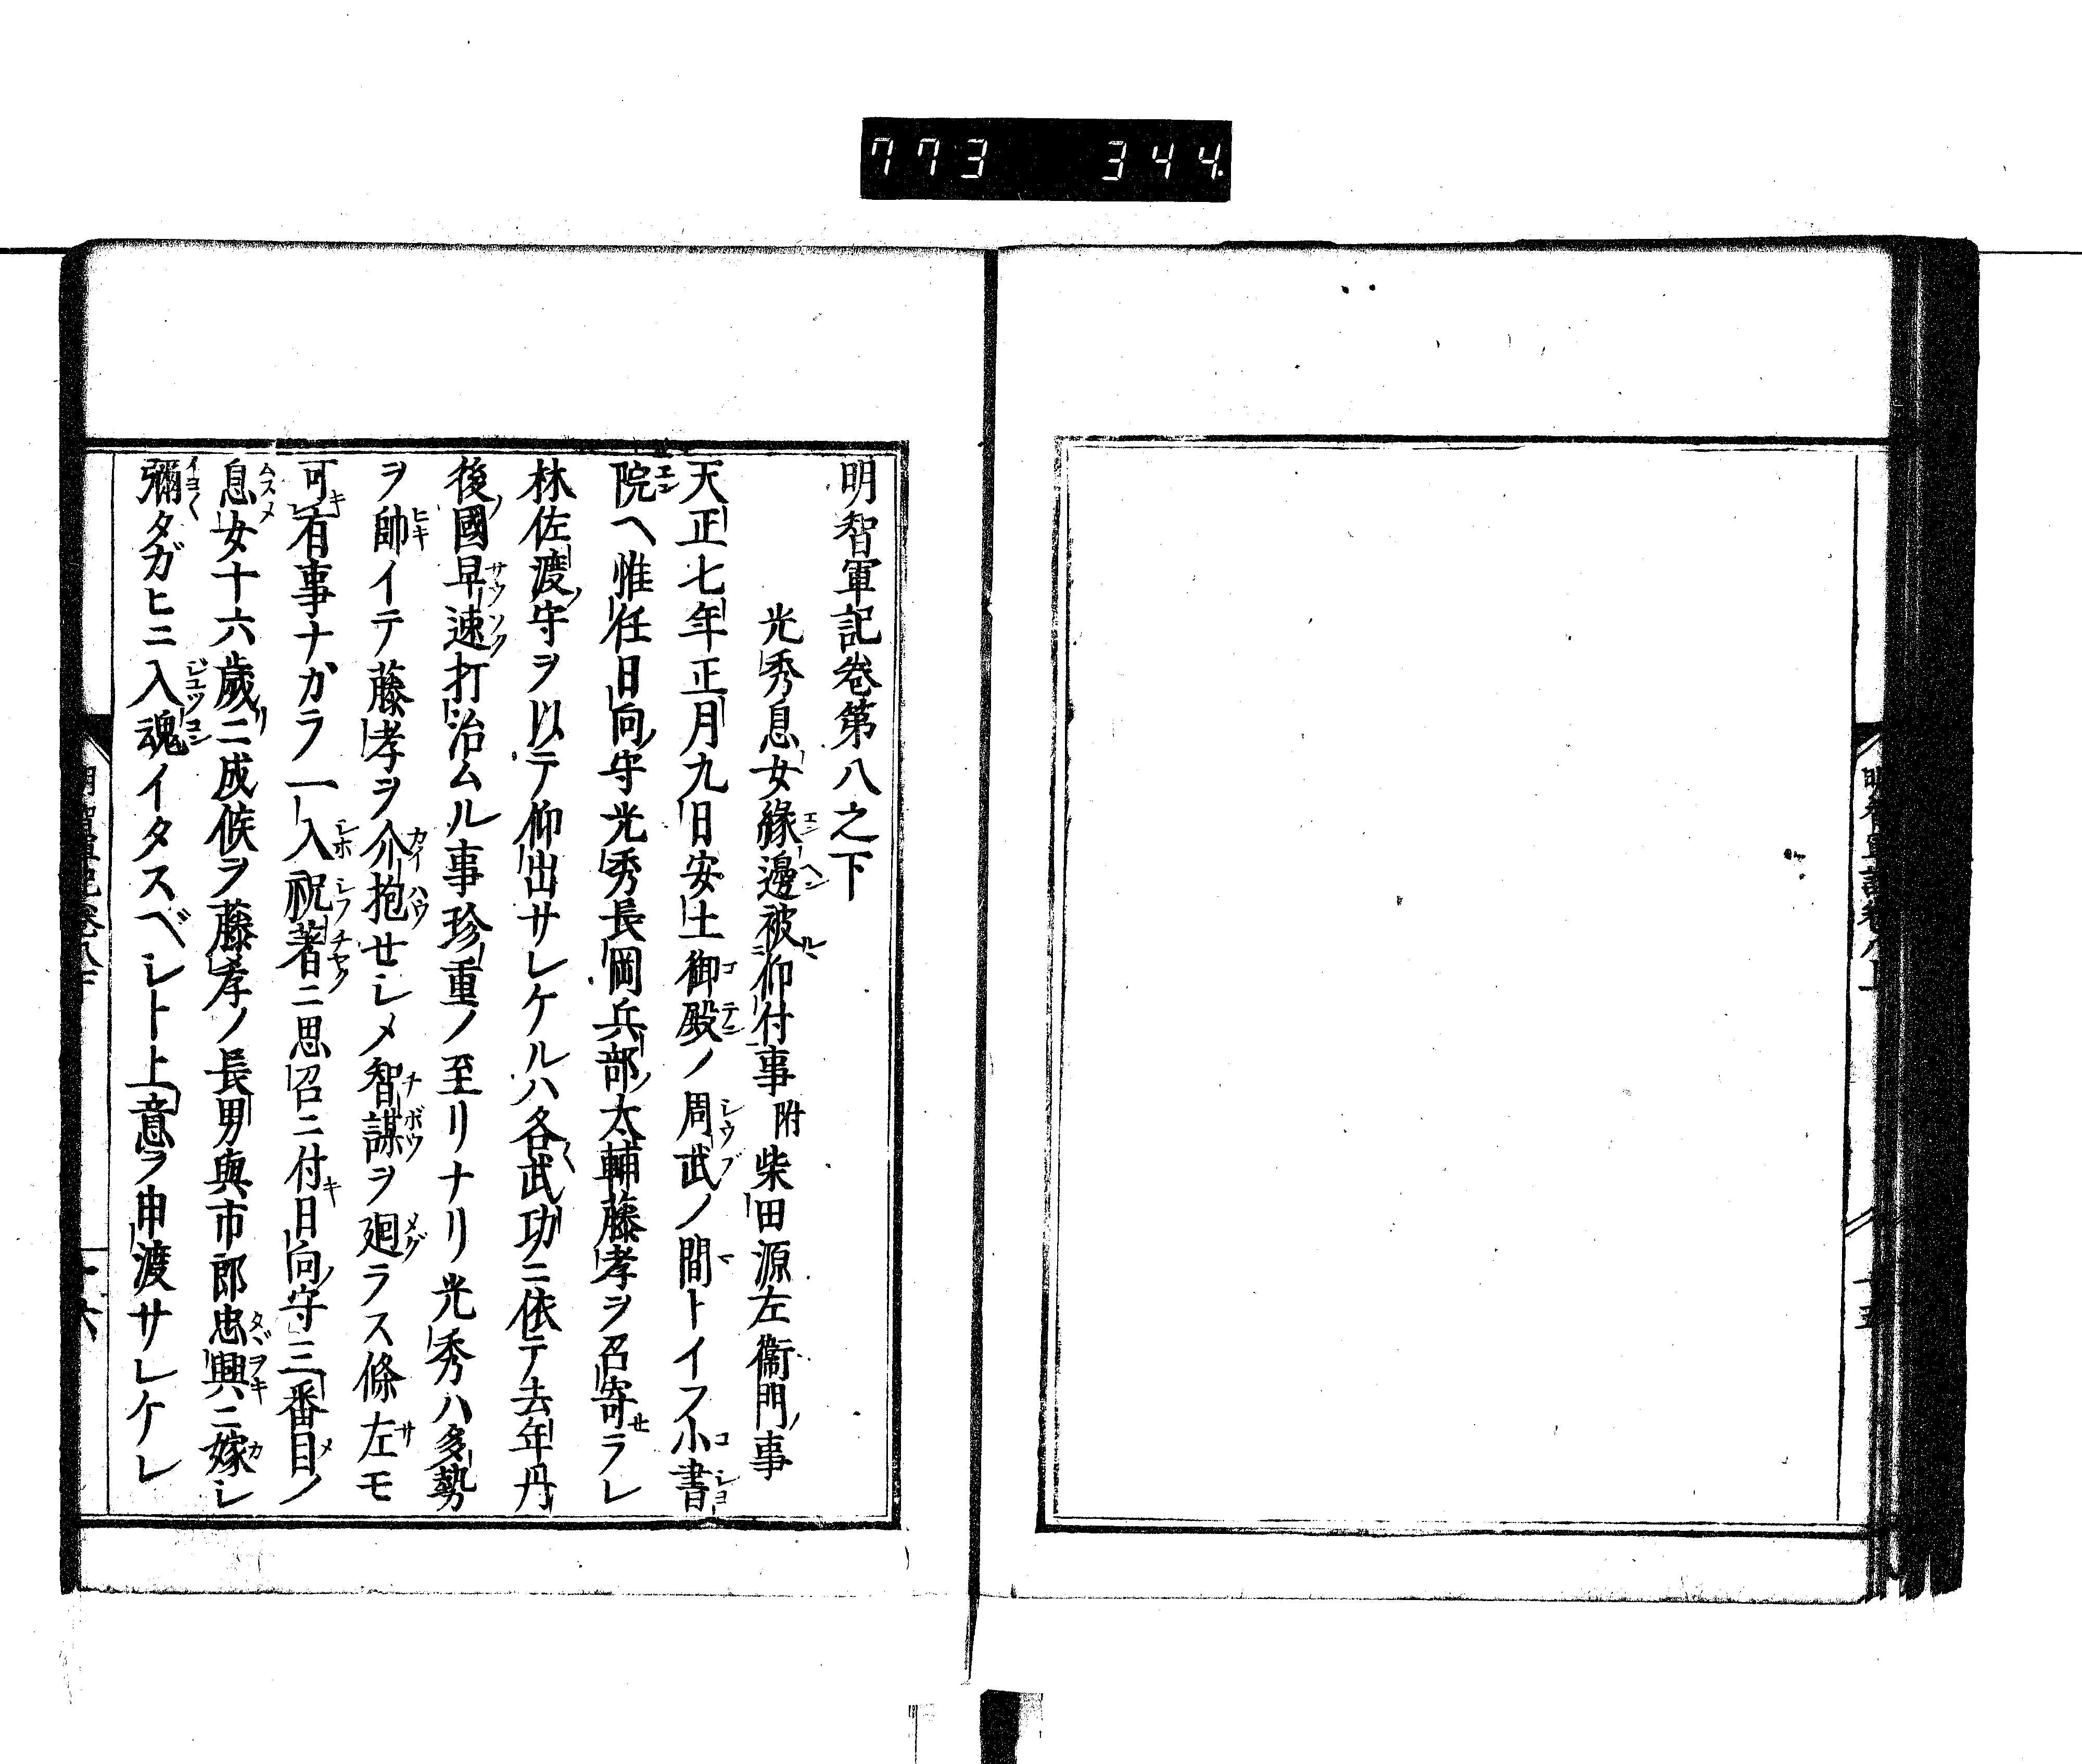 773 344.
明智軍記卷第八之下
光秀息女縁邊被仰付事附柴田源左衞門事
天正七年正月九日安土御殿ノ周武ノ間トイフ小書
院ヘ惟任日向守光秀長岡兵部太輔藤孝ヲ召寄ラレ
林佐渡守ヲ以テ仰出サレケルハ各武功ニ依テ去年丹
後國早速打治ムル事珍重ノ至リナリ光秀ハ多勢
ヲ帥イテ藤孝ヲ介抱セシメ智謀ヲ廻ラス條左モ
可有事ナカラ一入祝著ニ思召ニ付日向守三番目ノ
息女十六歳ニ成候ヲ藤孝ノ長男與市郎忠興ニ嫁シ
彌タガヒニ入魂イタスベシト上意ヲ申渡サレケレ
明智軍記卷八下